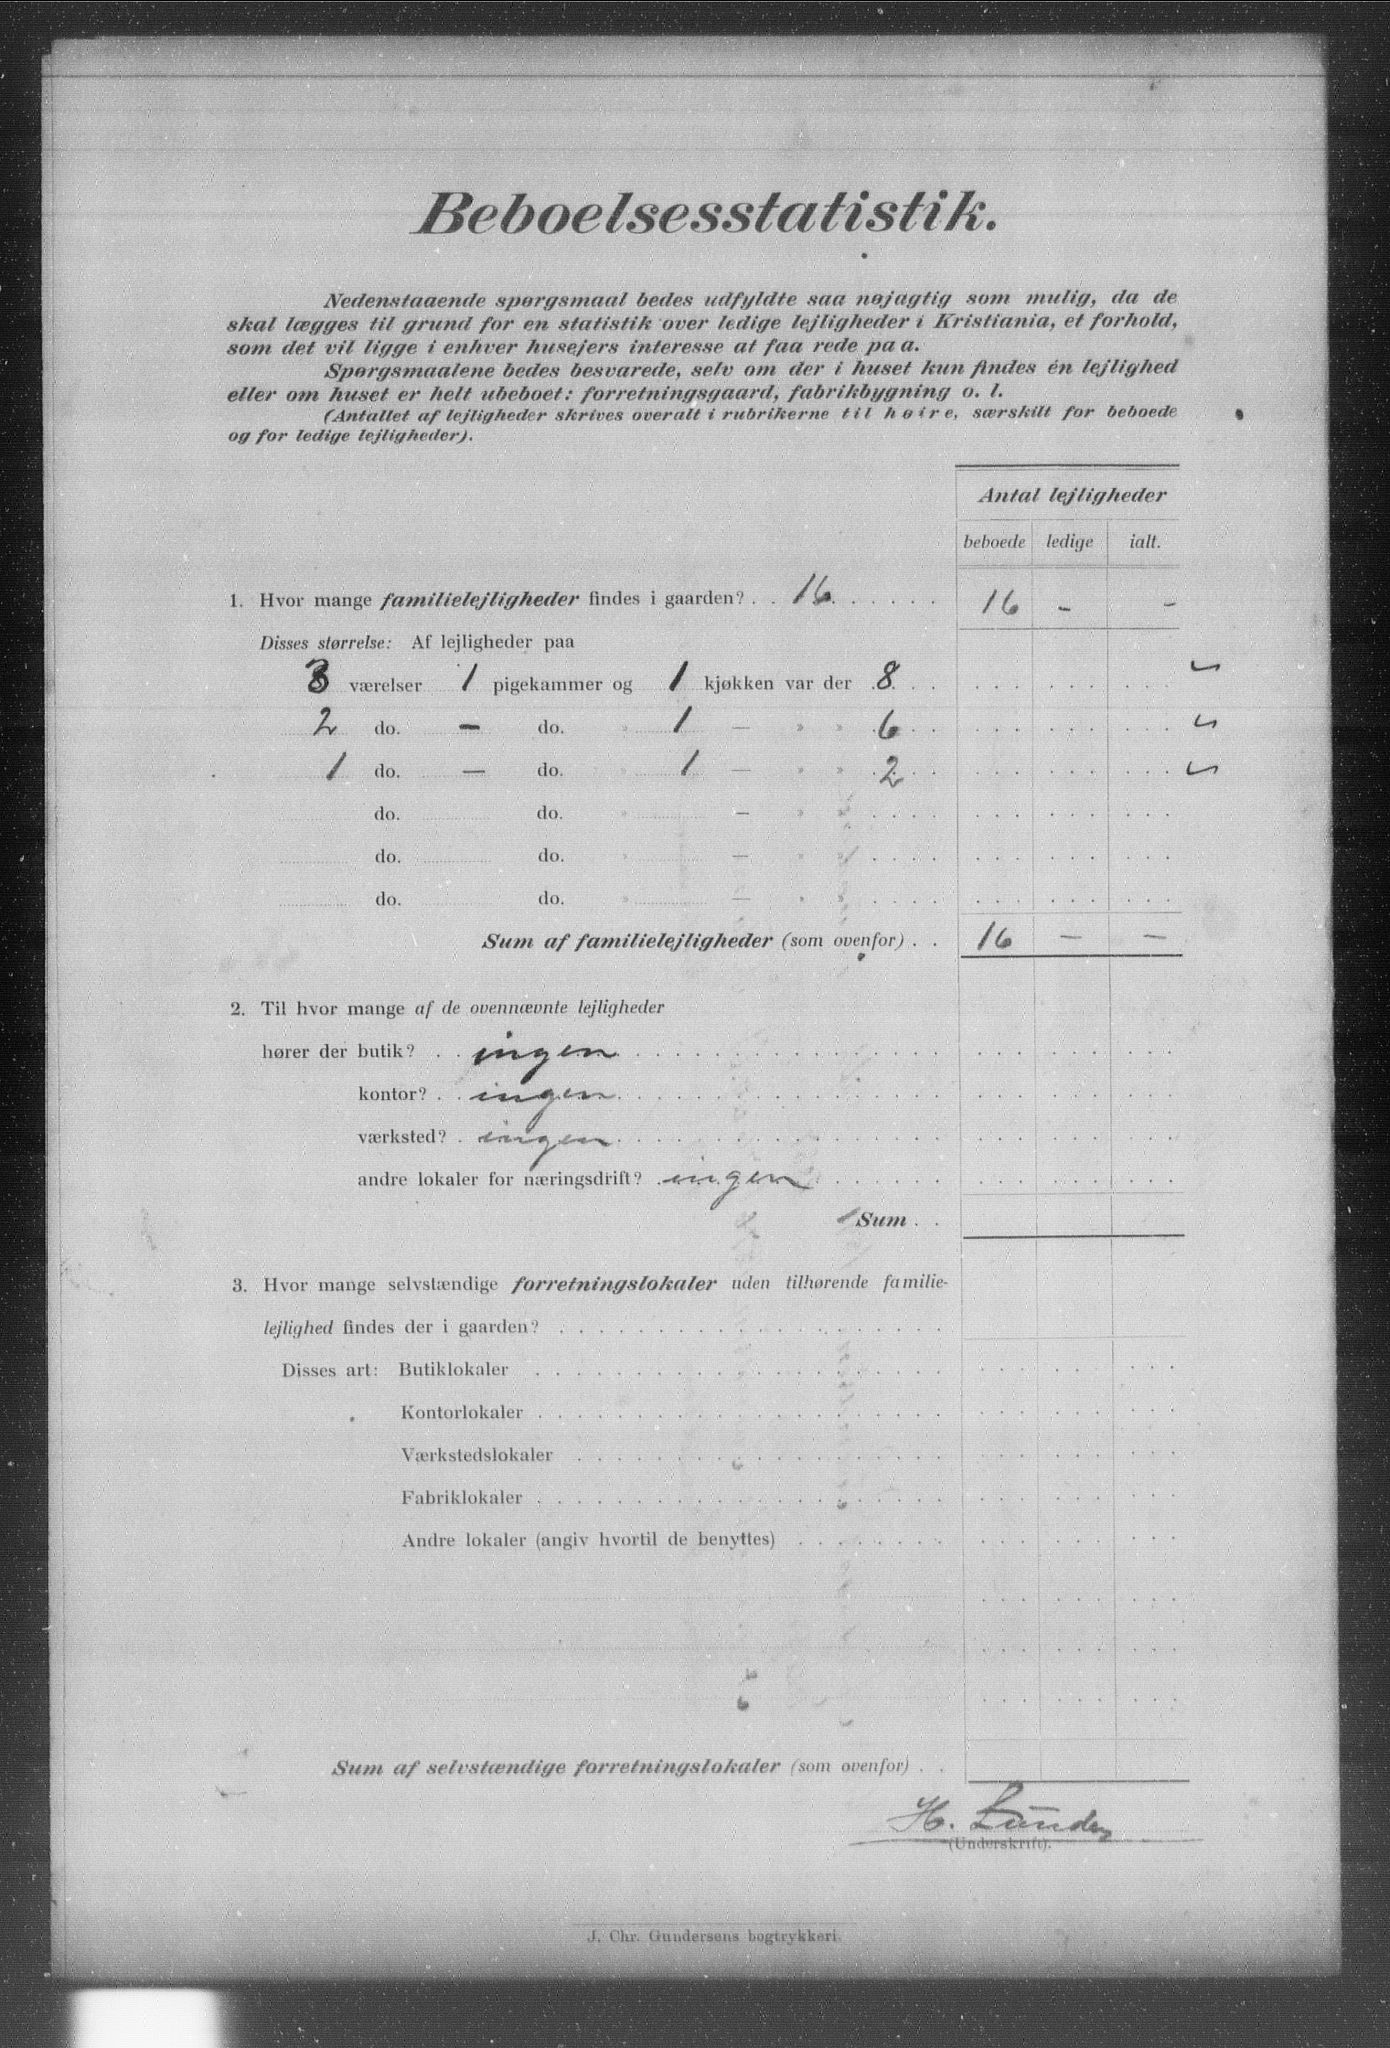 Beboelsesstatistik.
Nedenstaaende spørgsmaal bedes udfyldte saa nøjagtig som mulig, da de
skal lægges til grund for en statistik over ledige lejligheder i Kristiania, et forhold,
som det vil ligge i enhver husejers interesse at faa rede paa.
Spørgsmaalene bedes besvarede, selv om der i huset kun findes én lejlighed
eller om huset er helt ubeboet: forretningsgaard, fabrikbygning o. l.
(Antallet af lejligheder skrives overalt i rubrikerne til høire, særskilt for beboede
og for ledige lejligheder).
Antal lejligheder
beboede ledige ialt.
1. Hvor mange familielejligheder findes i gaarden? . . 16 . . . . . . 16 - -
Disses størrelse: Af lejligheder paa
3 værelser 1 pigekammer og 1 kjøkken var der 8
2 do. - do. " 1 — " " 6
1 do. — do. " 1 — " " 2
do. do. " — " "
do. do. " — " "
do. do. " — " "
Sum af familielejligheder (som ovenfor) . . 16 — —
2. Til hvor mange af de ovennævnte lejligheder
hører der butik? . . ingen
kontor? . . ingen
værksted? . ingen
andre lokaler for næringsdrift? . ingen
Sum . .
3. Hvor mange selvstændige forretningslokaler uden tilhørende familie-
lejlighed findes der i gaarden?
Disses art: Butiklokaler
Kontorlokaler
Værkstedslokaler
Fabriklokaler
Andre lokaler (angiv hvortil de benyttes)
Sum af selvstændige forretningslokaler (som ovenfor) . .
H.
(Underskrift).
J. Chr. Gundersens bogtrykkeri.